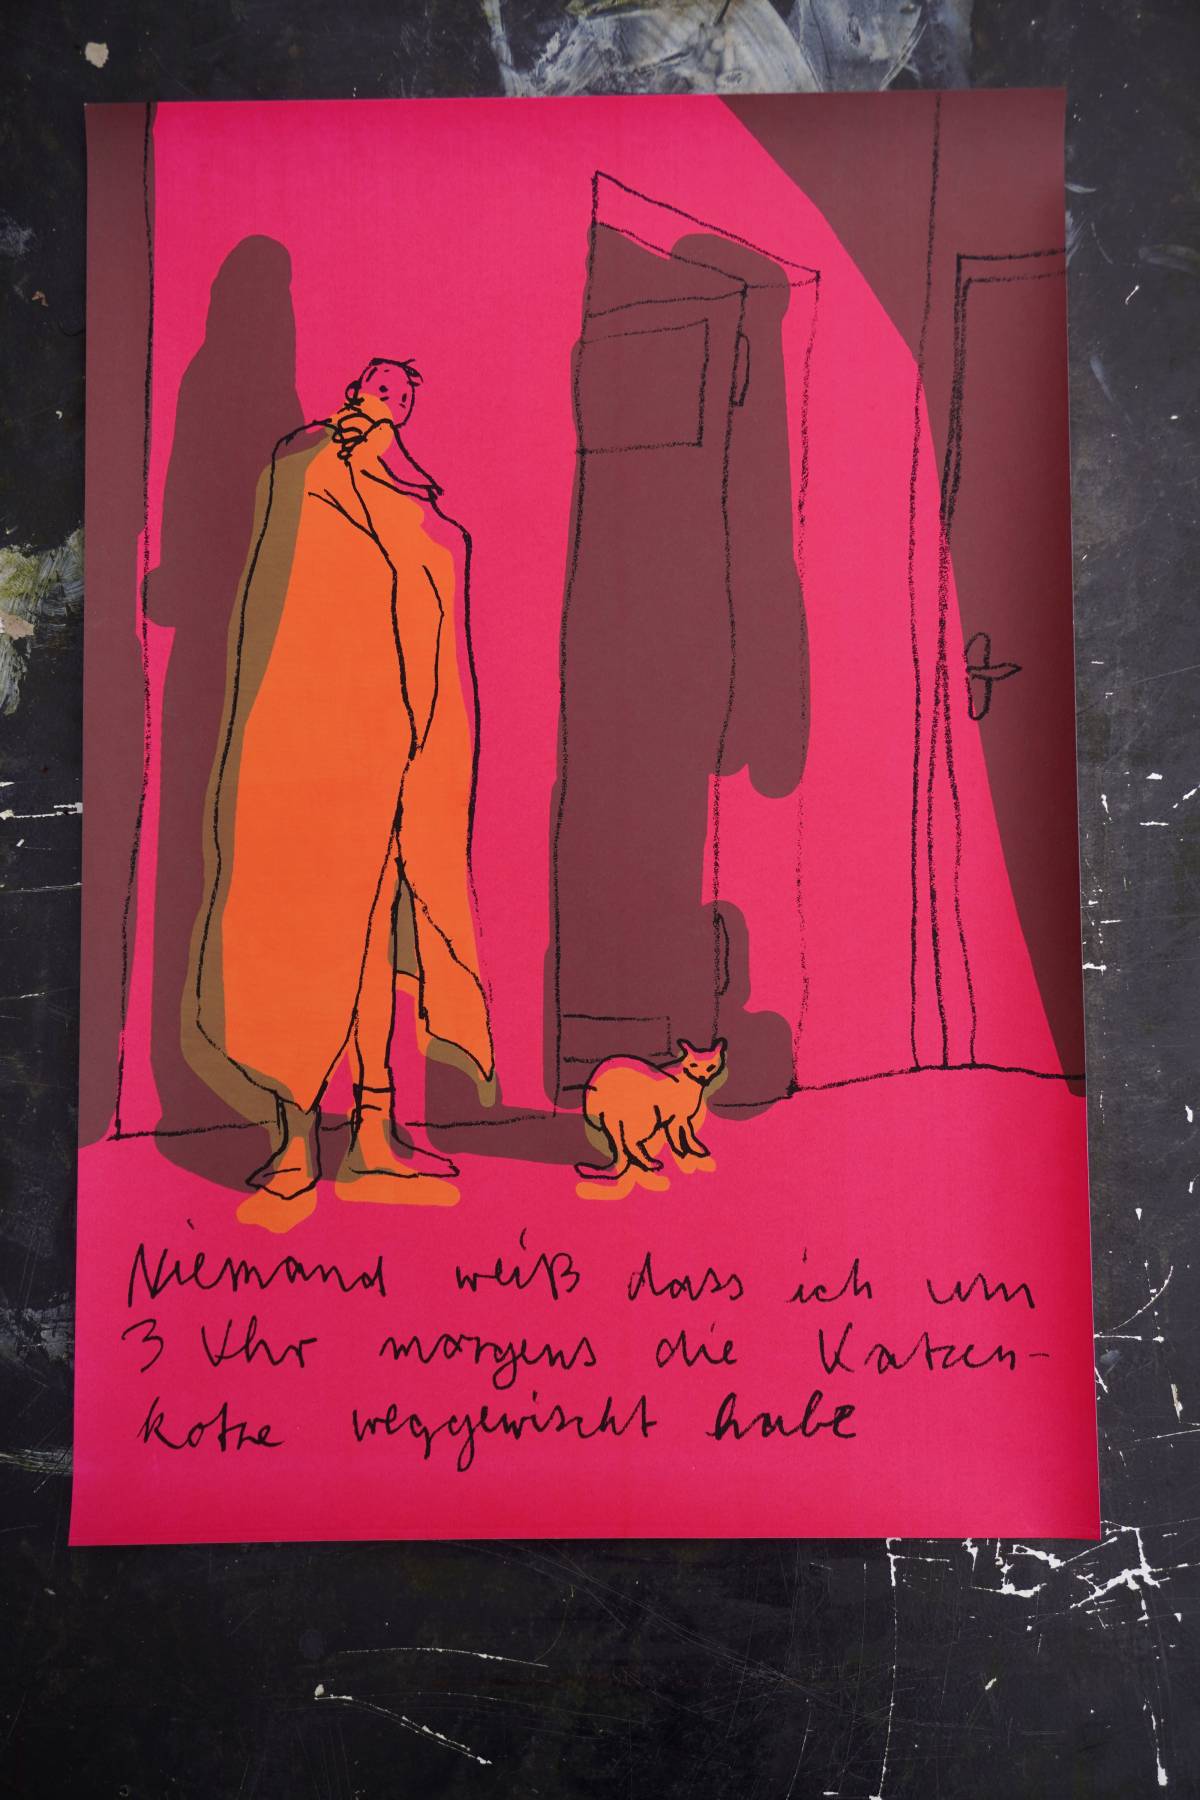 Niemand weiß dass ich um
3 Uhr morgens die Katzen-
kotze weggewischt habe